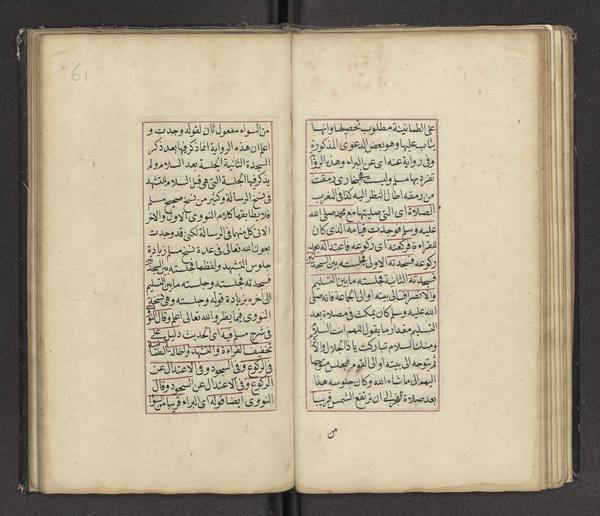 على الطمانينة مطلوب تحصيلها وانها
يثاب عليها وهو بعض الدعوى المذكورة
وفي رواية عنه اى عن البراء وهذه الروا
تفرد بها مسلم وليست في البخارى رمقت
من رمقه اطال النظر اليه كذا في المغرب
الصلاة اى التى صليتها مع محمد صلى الله
عليه وسلم فوجدت قيامه الذى كان
للقراءة فركعته اى ركوعه فاعتداله بعد
ركوعه فسجدته الاولى فجلسته بين السجدتين
فسجدته الثانية فجلسته ما بين التسليم
والانصراف الى بيته او الى الجماعة فانه صلى
الله عليه وسلم كان يمكث في مصلاه بعد
التسليم مقدار ما يقول اللهم انت السلام
ومنك السلام تباركت ياذا الجلال والاكرام
ثم يتوجه الى بيته او الى القوم فيجلس متوجها
اليهم الى ما شاء الله وكان جلوسه هذا
بعد صلاة الفجر الى ان ترتفع الشمس قريبا
من
61
من السواء مفعول ثان لقوله وجدت و
اعلم ان هذه الرواية انما ذكر فيها بعد ذكر
السجدة الثانية الجلسة بعد السلام ولم
يذكر فيها الجلسة التى هى قبل السلام للتشهد
في نسخ الرسالة وكثير من نسخ صحيح مسلم
فلا يطابقها كلام النووى الاول والاخر
الاتى كل منهما في الرسالة لكنى قد وجدت
بعون الله تعالى في عدة نسخ مسلم زيادة
جلوس التشهد ولفظها فجلسته بين السجدتين
فسجدته فجلسته وجلسته ما بين التسليم
الى اخره بزيادة قوله وجلسته وهى نسخة
النووى فيما يظهر والله تعالى اعلم وقال النووى
في شرح مسلم فيه اى الحديث دليل على
تخفيف القراءة والتشهد واطالة الطمانينة
في الركوع وفي السجود وفي الاعتدال عن
الركوع وفي الاعتدال عن السجود وقال
النووى ايضا قوله اى البراء قريبا من السواء